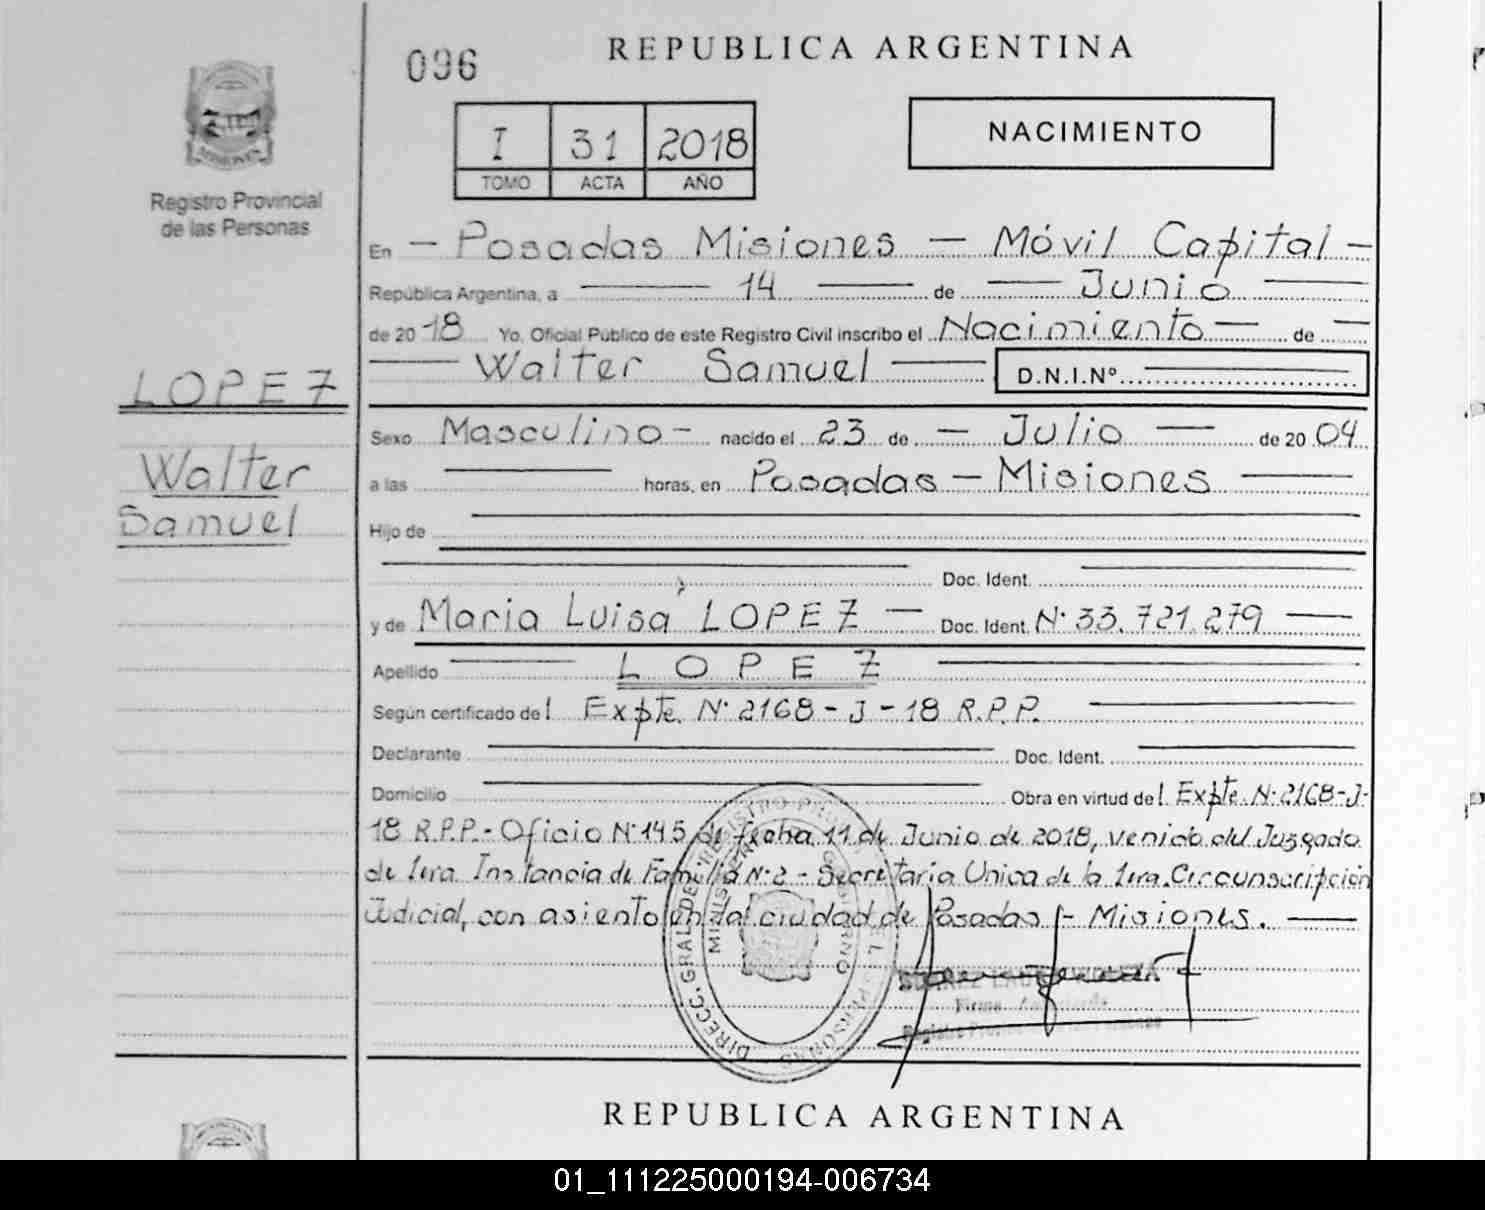 096
REPUBLICA ARGENTINA
I 31 2018
TOMO ACTA AÑO
NACIMIENTO
Registro Provincial
de las Personas
LOPEZ
Walter
Samuel
En - Posadas Misiones - Móvil Capital -
República Argentina, a 14 de Junio
de 2018 Yo, Oficial Público de este Registro Civil inscribo el Nacimiento de
Walter Samuel D.N.I.Nº
Sexo Masculino - nacido el 23 de - Julio - de 2004
a las horas, en Posadas - Misiones
Hijo de
Doc. Ident.
y de Maria Luisa LOPEZ - Doc. Ident. Nº 33.721.279
Apellido LOPEZ
Según certificado del Expte. Nº 2168-J-18 R.P.P.
Declarante Doc. Ident.
Domicilio Obra en virtud del Expte. Nº 2168-J-
18 R.P.P.- Oficio Nº 145 de fecha 11 de Junio de 2018, venido del Juzgado
de 1era Instancia de Familia Nº 2 - Secretaria Unica de la 1era. Circunscripción
Judicial, con asiento en la ciudad de Posadas - Misiones.
DIRECC. GRAL. DE REGISTRO
REPUBLICA ARGENTINA
01_111225000194-006734